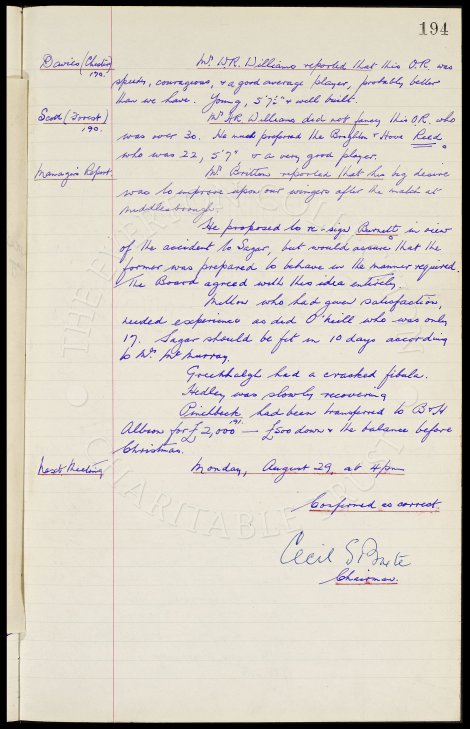 194
Davies (Chester) 190. Mr. W.R. Williams reported that this O.R. was
speedy, courageous, & a good average player, probably better
than we have. Young, 5'7½" & well built.
Scott (Forrest) 190. Mr. W.R. Williams did not fancy this O.R. who
was over 30. He much preferred the Brighton & Hove Reed
who was 22, 5'7" & a very good player.
Manager's Report. Mr. Britton reported that his big desire
was to improve upon our wingers after the match at
Middlesborough.
He proposed to re-sign Burnett in view
of the accident to Sagar, but would assure that the
former was prepared to behave in the manner required.
The Board agreed with this idea entirely.
Mellon who had given satisfaction,
needed experience as did O'Neill who was only
17. Sagar should be fit in 10 days according
to Mr. McMurray.
Greenhalgh had a cracked fibula.
Hedley was slowly recovering
Pinchbeck had been transferred to B & H
Albion for £2,000 191. — £500 down & the balance before
Christmas.
Next Meeting Monday, August 29, at 4pm
Confirmed as correct.
Cecil S. Baxter
Chairman.
THE EVERTON COLLECTION CHARITABLE TRUST